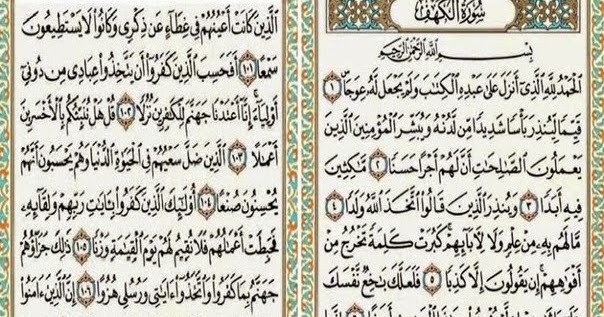 سُورَةُ الْكَهْفِ
بِسْمِ اللَّهِ الرَّحْمَٰنِ الرَّحِيمِ
الْحَمْدُ لِلَّهِ الَّذِي أَنزَلَ عَلَىٰ عَبْدِهِ الْكِتَابَ وَلَمْ يَجْعَل لَّهُ عِوَجًا ۜ ١
قَيِّمًا لِّيُنذِرَ بَأْسًا شَدِيدًا مِّن لَّدُنْهُ وَيُبَشِّرَ الْمُؤْمِنِينَ الَّذِينَ
يَعْمَلُونَ الصَّالِحَاتِ أَنَّ لَهُمْ أَجْرًا حَسَنًا ٢ مَّاكِثِينَ
فِيهِ أَبَدًا ٣ وَيُنذِرَ الَّذِينَ قَالُوا اتَّخَذَ اللَّهُ وَلَدًا ٤
مَّا لَهُم بِهِ مِنْ عِلْمٍ وَلَا لِآبَائِهِمْ ۚ كَبُرَتْ كَلِمَةً تَخْرُجُ مِنْ
أَفْوَاهِهِمْ ۚ إِن يَقُولُونَ إِلَّا كَذِبًا ٥ فَلَعَلَّكَ بَاخِعٌ نَّفْسَكَ
الَّذِينَ كَانَتْ أَعْيُنُهُمْ فِي غِطَاءٍ عَن ذِكْرِي وَكَانُوا لَا يَسْتَطِيعُونَ
سَمْعًا ١٠١ أَفَحَسِبَ الَّذِينَ كَفَرُوا أَن يَتَّخِذُوا عِبَادِي مِن دُونِي
أَوْلِيَاءَ ۚ إِنَّا أَعْتَدْنَا جَهَنَّمَ لِلْكَافِرِينَ نُزُلًا ١٠٢ قُلْ هَلْ نُنَبِّئُكُم بِالْأَخْسَرِينَ
أَعْمَالًا ١٠٣ الَّذِينَ ضَلَّ سَعْيُهُمْ فِي الْحَيَاةِ الدُّنْيَا وَهُمْ يَحْسَبُونَ أَنَّهُمْ
يُحْسِنُونَ صُنْعًا ١٠٤ أُولَٰئِكَ الَّذِينَ كَفَرُوا بِآيَاتِ رَبِّهِمْ وَلِقَائِهِ
فَحَبِطَتْ أَعْمَالُهُمْ فَلَا نُقِيمُ لَهُمْ يَوْمَ الْقِيَامَةِ وَزْنًا ١٠٥ ذَٰلِكَ جَزَاؤُهُمْ
جَهَنَّمُ بِمَا كَفَرُوا وَاتَّخَذُوا آيَاتِي وَرُسُلِي هُزُوًا ١٠٦ إِنَّ الَّذِينَ آمَنُوا